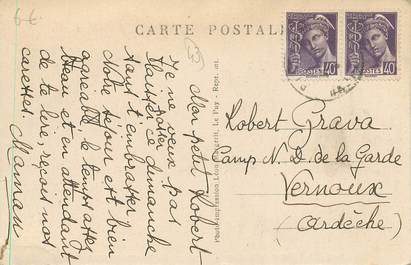 6€
CARTE POSTALE
POSTES
40
POSTES
40
Mon petit Robert
Je ne veux pas
laisser passer ce dimanche
sans t'embrasser
Notre séjour est bien
agréable le temps assez
beau et en attendant
de te lire, reçois nos
caresses. Maman
Robert Grava
Camp N. D. de la Garde
Vernoux
(Ardèche)
Impression Léon Le Puy - Repr. int.